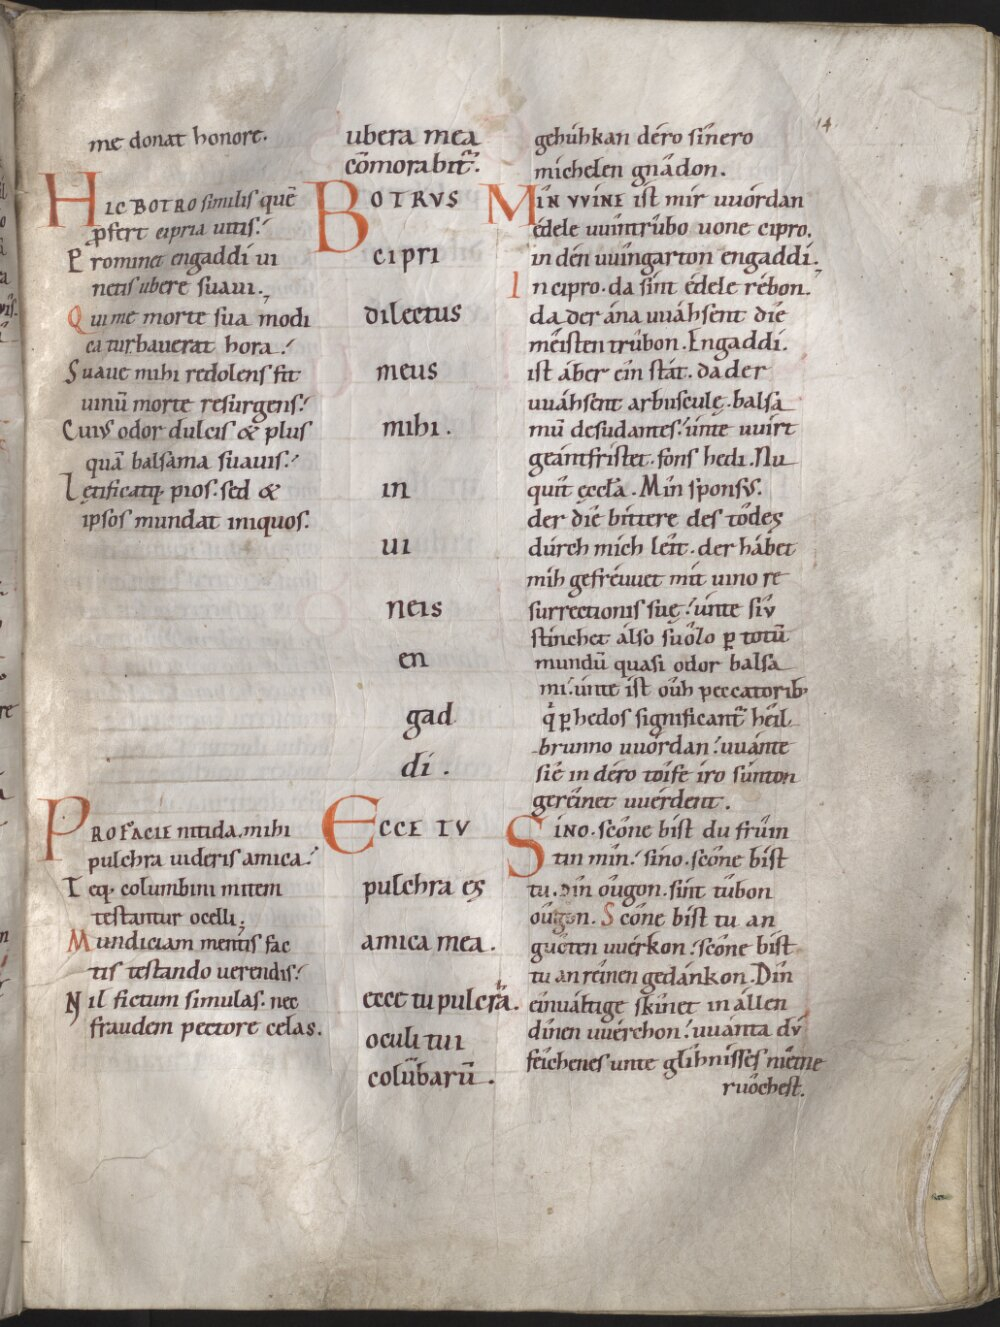 14.
me donat honore.
HIC BOTRO similis quē
ꝑfert cipria uitis.
Prominet engaddi ui
neis ubere suaui.
Qui me morte sua modi
ca turbauerat hora.
Suaue mihi redolens fit
uinū morte resurgens.
Cuius odor dulcis & plus
quā balsama suauis.
Lętificatq. pios. sed &
ipsos mundat iniquos.
PRO FACIE nitida. mihi
pulchra uideris amica.
Teq. columbini mitem
testantur ocelli.
Mundiciam mentis fac
tis testando uerendis.
Nil fictum simulas. nec
fraudem pectore celas.
ubera mea
cōmorabit̄.
BOTRVS
cipri
dilectus
meus
mihi.
in
ui
neis
en
gad
di.
ECCE TV
pulchra es
amica mea.
ecce tu pulcrā.
oculi tui
colūbarū.
gehúhkan déro sînero
míchelen gnâdon.
MÎN VVINE ist mir uuórdan
édele uuîntrûbo uone cipro.
in dén uuîngarton engaddi.
In cipro. da sint édele rébon.
da der ána uuáhsent die
méisten trûbon. Engaddi.
ist áber ein stát. da der
uuáhsent arbuscule. balsa
mū desudantes. únte uuirt
geántfristet. fons hedi. Nu
quît ęccła. Mîn sponsus.
der die bíttere des tôdes
dúrch mich leit. der hábet
mih gefréuuet mit uino re
surrectionis suę. únte siu
stinchet álso suôzo ꝑ totū
mundū quasi odor balsa
mi. únte ist ouh peccatorib.
q̇ ꝑ hedos significant̄ héil
brunno uuórdan. uuánte
sie in déro toife íro súnton
gereinet uuérdent.
SINO. scône bist du frûin
tin mîn. sino. scône bist
tu. dîn oûgon. sint tûbon
oûgon. Scône bist tu an
guôten uuérkon. scône bist
tu an reinen gedánkon. Dîn
einuáltige skînet in állen
dinen uuérchon. uuánta dv
feichenes unte glíhnisses niene
ruôchest.